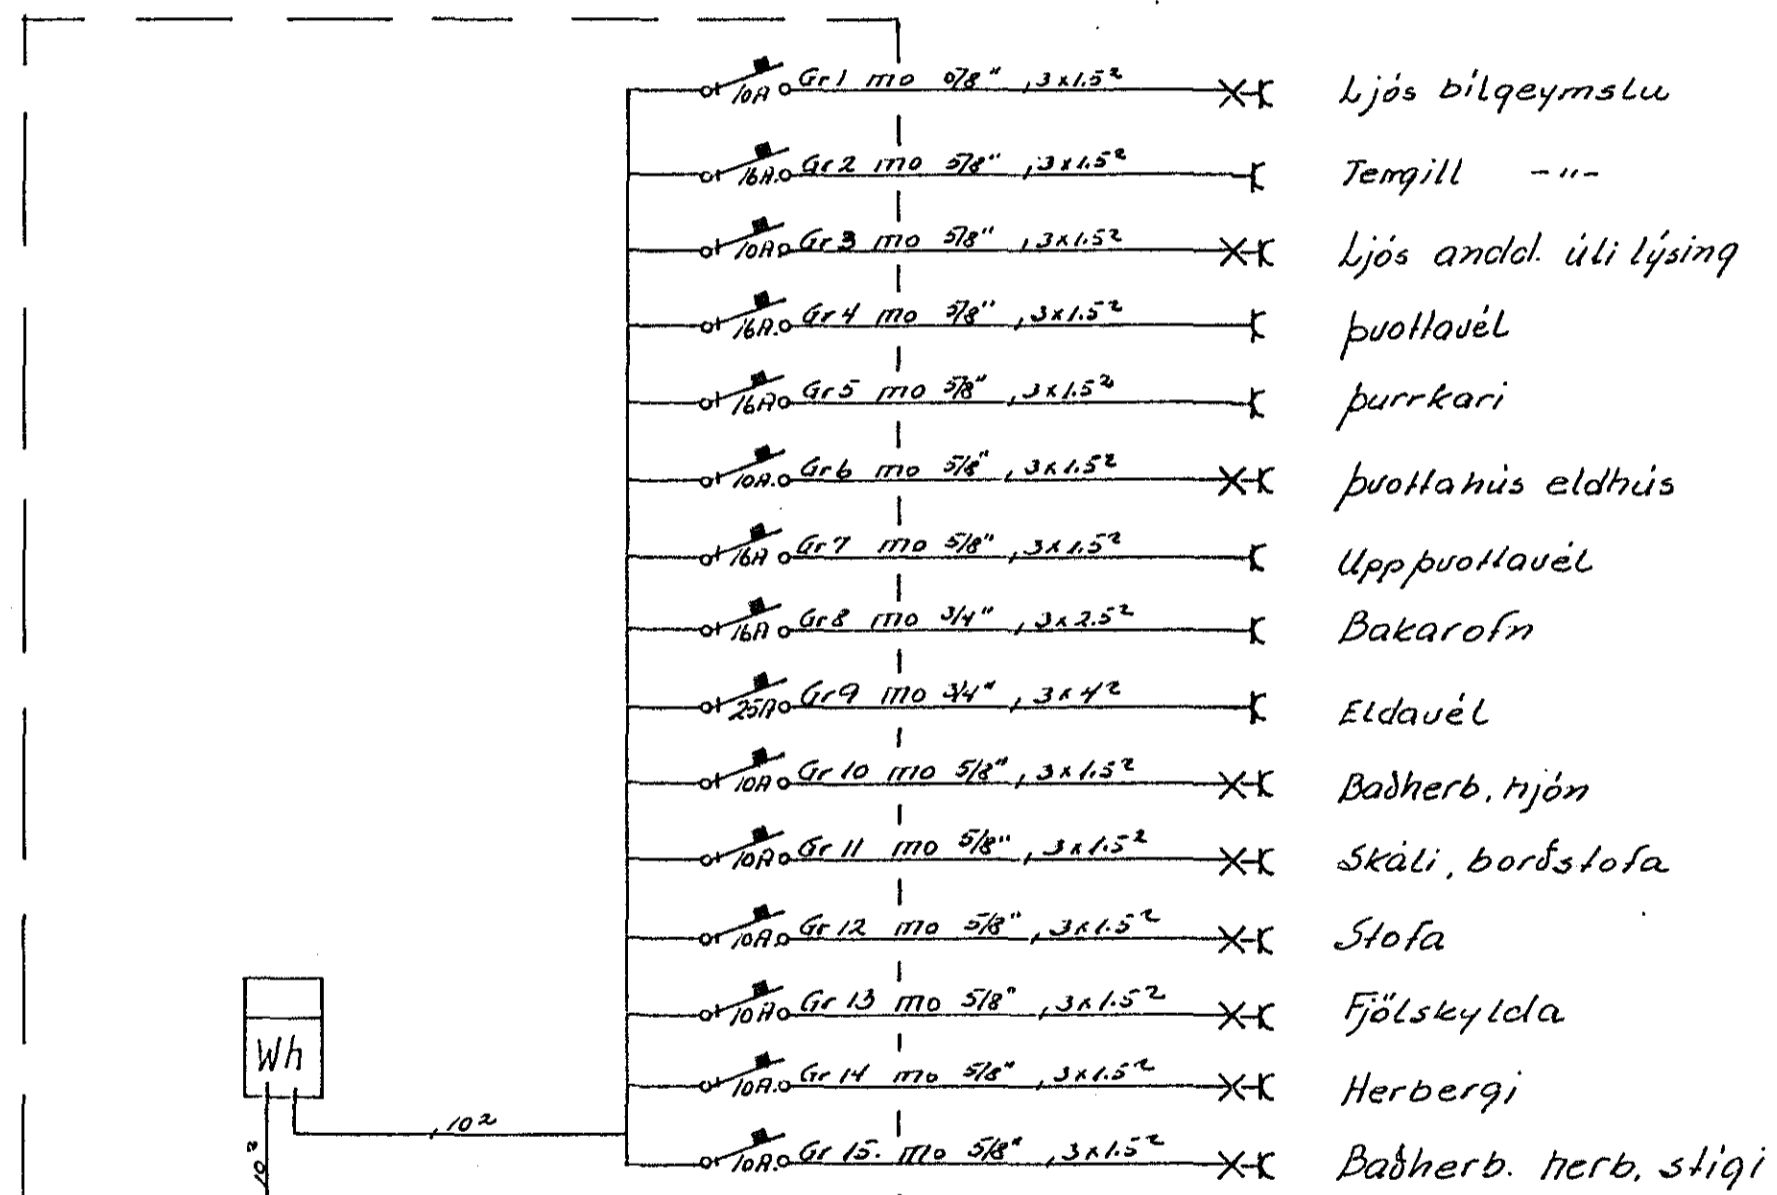 10A Gr1 mo 5/8", 3x1.5² Ljós bílgeymslu
16A. Gr2 mo 5/8", 3x1.5² Tengill -"-
10A Gr3 mo 5/8", 3x1.5² Ljós andd. úti lýsing
16A. Gr4 mo 5/8", 3x1.5² Þvottavél
16A Gr5 mo 5/8", 3x1.5² Þurrkari
10A. Gr6 mo 5/8", 3x1.5² Þvottahús eldhús
16A Gr7 mo 5/8", 3x1.5² Uppþvottavél
16A Gr8 mo 3/4", 3x2.5² Bakarofn
25A Gr9 mo 3/4", 3x4² Eldavél
10A Gr10 mo 5/8", 3x1.5² Baðherb, hjón
10A Gr11 mo 5/8", 3x1.5² Skáli, borðstofa
10A. Gr12 mo 5/8", 3x1.5² Stofa
10A Gr13 mo 5/8", 3x1.5² Fjölskylda
Wh
10A. Gr14 mo 5/8", 3x1.5² Herbergi
10²
10²
10A. Gr15. mo 5/8", 3x1.5² Baðherb. herb, stigi